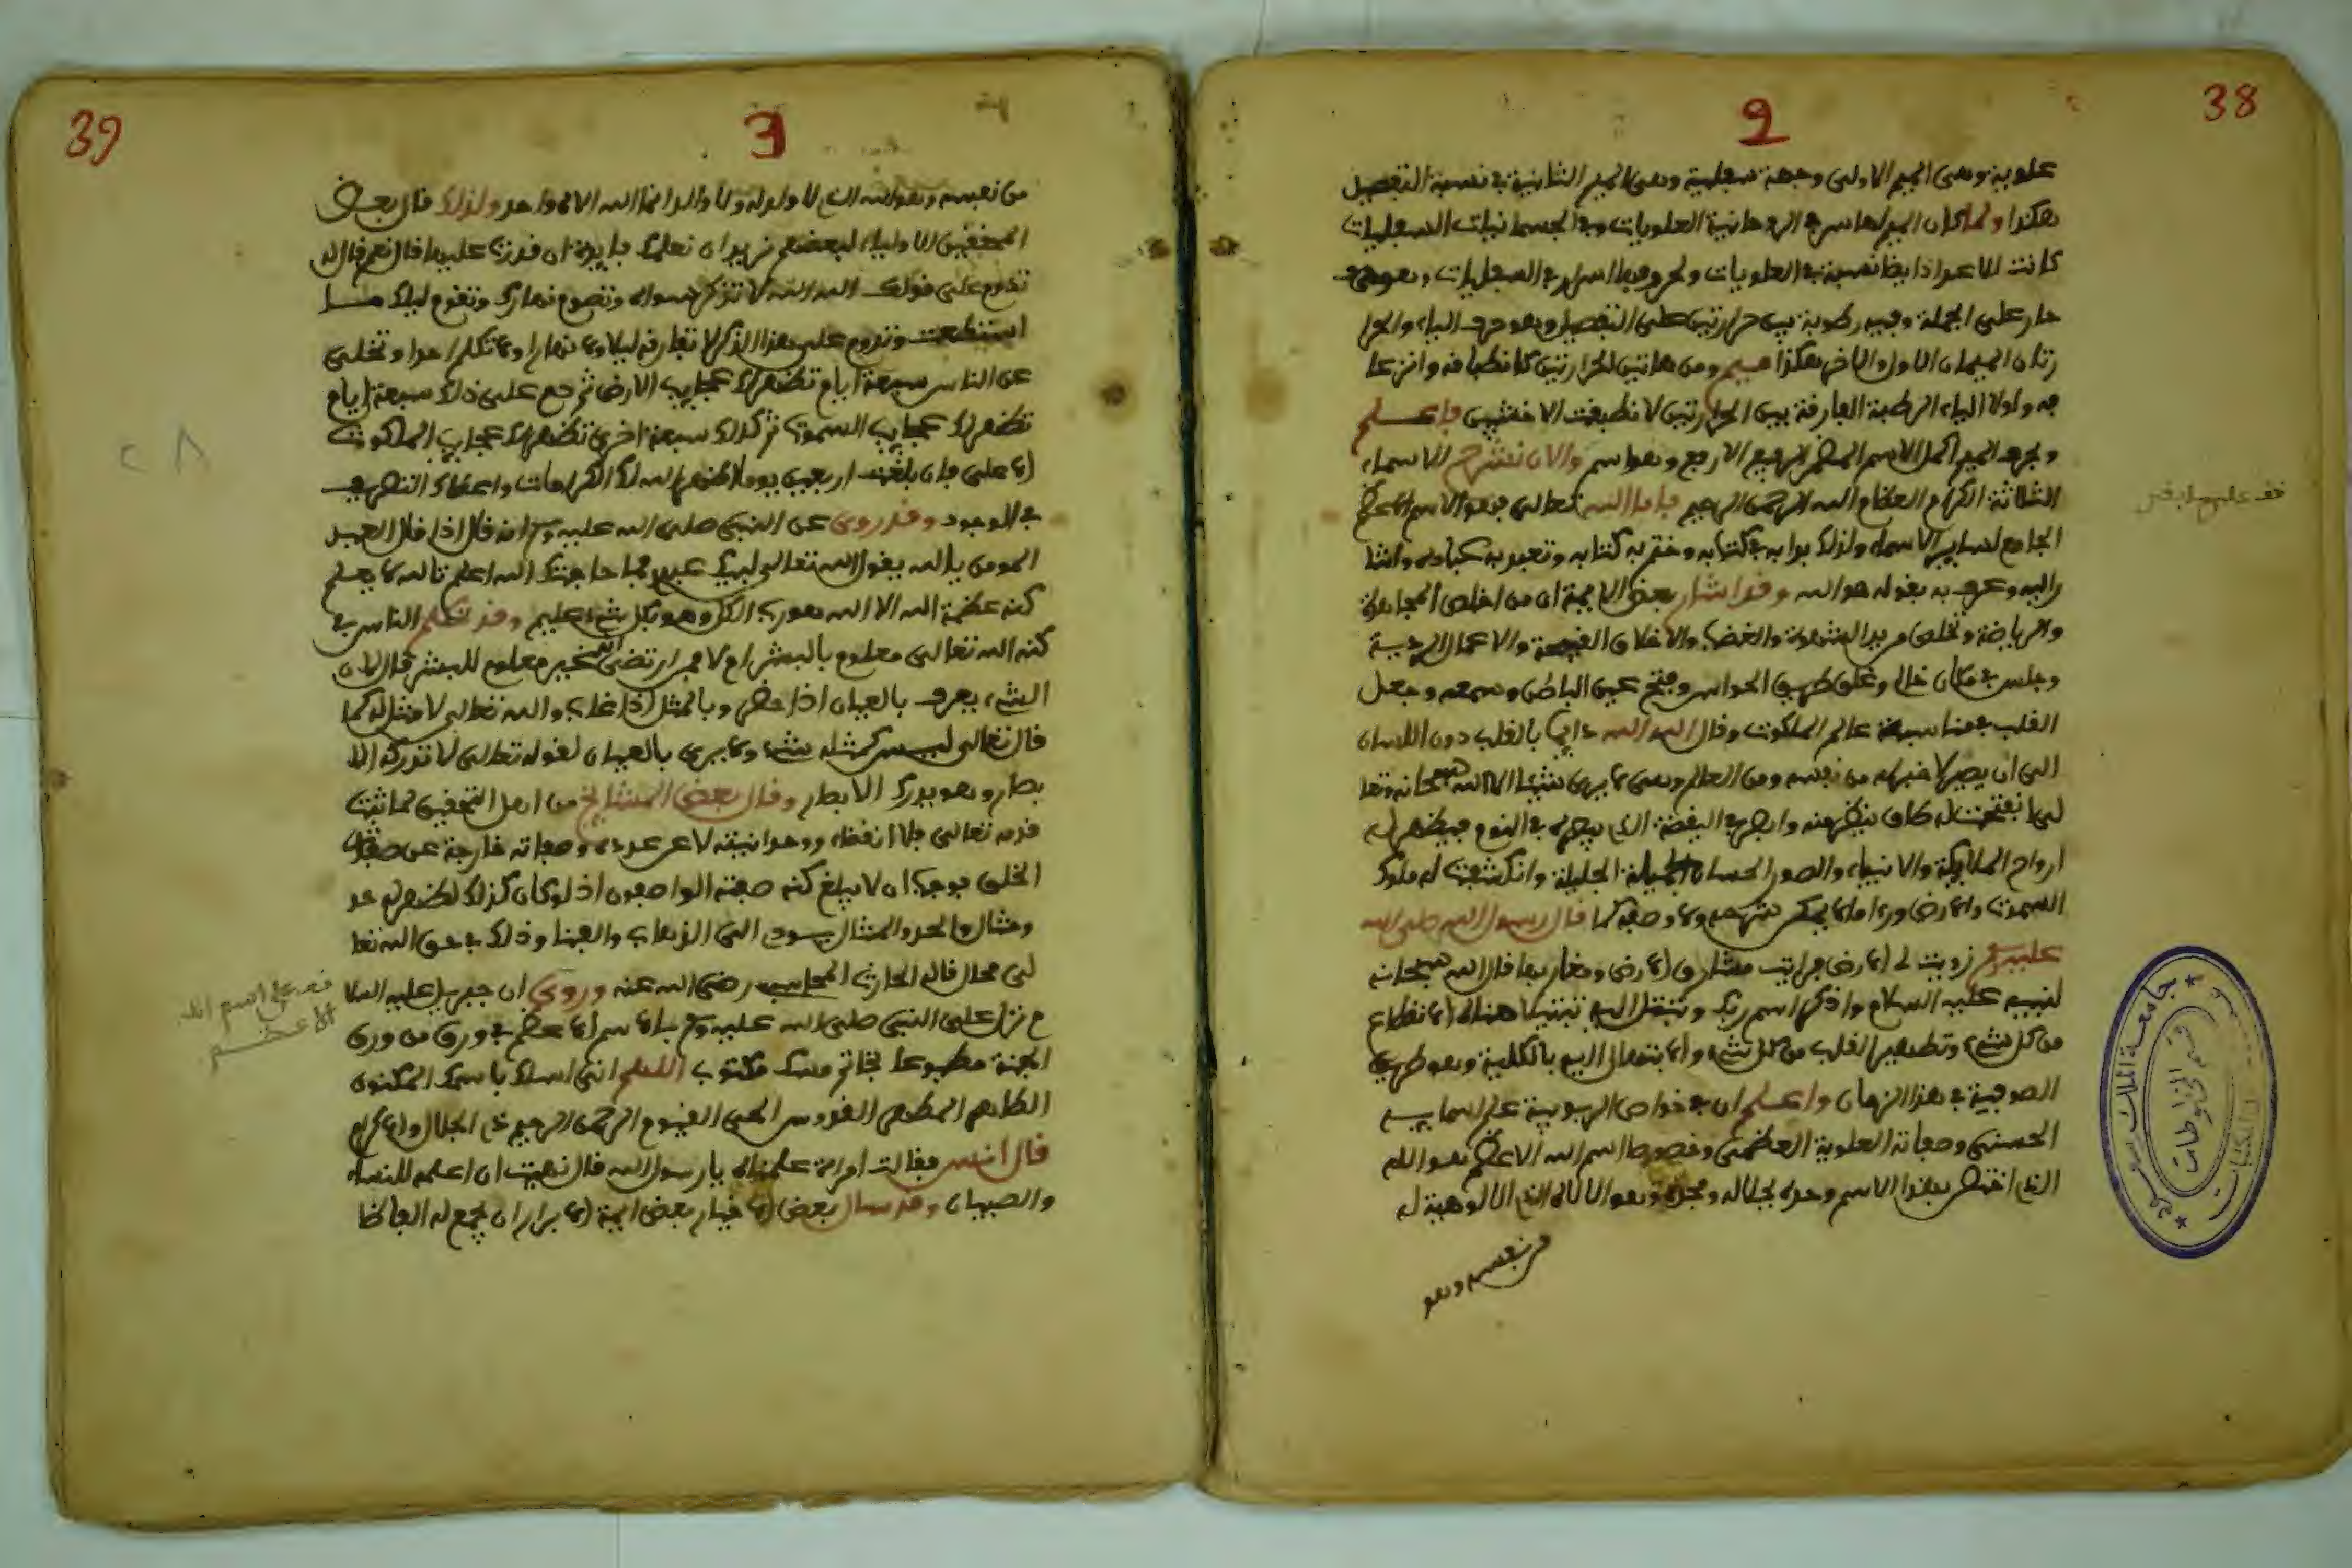 38
2
علوية وهى الميم الاولى وجهة سفلية وهى الميم الثانية فى نسبة التفصيل
هكذا ولما كان الميم لها سر فى الروحانية العلويات وفى الجسمانيات السفليات
كانت للاعداد ايضا نسبة فى العلويات ولحروفها اسرار فى السفليات وهو حرف
حار على الجملة وفيه رطوبة بين حرارتين على التفصيل وهو حرف الياء والحرا
رتان الميمان الاول والاخر هكذا ميم ومن هاتين الحرارتين كان
جه ولولا الياء الرطبة الفارقة بين الحرارتين لانطبقت الاخشبين فاعلم
وبحرف الميم اكمل الاسم المطهر الرفيع الارفع وهو اسم والان نشرح الاسماء
الثلاثة الكرام العظام الله الرحمن الرحيم فاما الله تعالى فهو الاسم الاعظم
الجامع لساير الاسماء ولذلك بدا به فى كتابه وختم به كتابه وتعبد به عباده واشا
راليه وعرف به بقوله هو الله وقد اشار بعض الايمة ان من اخلص المجاهدة
والرياضة وتخلص من يد الشهوة والغضب والاخلاق القبيحة والاعمال الردية
وجلس فى مكان خال وغلق طريق الحواس وفتح عين الباطن وسمعه وجعل
القلب فى مناسبة عالم الملكوت وقال الله الله دايما بالقلب دون اللسان
الى ان يصير لا خبر له من نفسه ومن العالم وهى لا يرى شيئا الا الله سبحانه وتعا
لى انفتحت له طاق ينظر منه وابصر فى اليقضة الذى يبصره فى النوم فيظهر له
ارواح الملايكة والانبياء والصور الحسان الجميلة الجليلة وانكشفت له ملوك
السموت والارض وراى ما لا يمكن شرحه ولا وصفه كما قال رسول الله صلى الله
عليه وسلم زويت لى الارض فرايت مشارق الارض ومغاربها قال الله سبحانه
لنبيه عليه السلام واذكر اسم ربك وتبتل اليه تبتيلا معناه الانقطاع
من كل شىء وتطهير القلب من كل شىء والابتهال اليه بالكلية وهو طريق
الصوفية فى هذا الزمان واعلم ان فى خواص الربوبية على اسمايه
الحسنى وصفاته العلوية العظمى وخصوصا اسم الله الاعظم هو الله
الذى اختص بهذا الاسم وحده بجلاله ومجده وهو الالاه الذى الالوهية له
من نفسه وهو
قف على
جامعة الملك سعود
قسم المخطوطات
39
3
من نفسه وهو الله الذى لا ولد له ولا والد انما الله الاه واحد ولذلك قال بعض
المحققين الاولياء لبعضهم نريد ان نعلمك فايدة ان قدرت عليها قال نعم قال له
تدوم على قولك الله الله لا تذكر سواه وتصوم نهارك وتقوم ليلك ما
استطعت وتدوم على هذا الذكر لا تفارقه ليلا ولا نهارا ولا تكلم احدا وتخلى
عن الناس سبعة ايام تظهر لك عجايب الارض ثم دم على ذلك سبعة ايام
تظهر لك عجايب السموت ثم كذلك سبعة اخرى تظهر لك عجايب الملكوت
الاعلى فان بلغت اربعين يوما اظهر الله لك الكرامات واعطاك التصريف
فى الوجود وقد روى عن النبى صلى الله عليه وسلم انه قال اذا قال العبد
المومن يا الله يقول الله تعالى لبيك عبدى فما حاجتك الله اعلم تالله لا يعلم
كنه عظمة الله الا الله هو رب الكل وهو بكل شىء عليم وقد تكلم الناس فى
كنه الله تعالى معلوم بالبشر ام لا فمن ارتضى انه غير معلوم للبشر قال لان
الشىء يعرف بالعيان اذا حضر وبالمثل اذا غاب والله تعالى لا مثل له كما
قال تعالى ليس كمثله شىء ولا يرى بالعيان لقوله تعالى لا تدركه الا
بصار وهو يدرك الابصار وقال بعض المشايخ من اهل التحقيق لما ثبت
قدمه تعالى بلا انقضاء ووحدانيته لا عن عدد وصفاته خارجة عن صفات
الخلق فوجب ان لا يبلغ كنه صفته الواصفون اذ لو كان كذلك لظهر له حد
ومثال والحد والمثال يعود الى الذهاب والفنا وذلك فى حق الله تعا
لى محال قاله الحارث المحاسبى رضى الله عنه وروى ان جبريل عليه السلا
م نزل على النبى صلى الله عليه وسلم بالاسم الاعظم فى ورق من ورق
الجنة مطبوعا بخاتم مسك مكتوب اللهم انى اسلك باسمك المكنون
الطاهر المطهر القدوس الحى القيوم الرحمن الرحيم ذى الجلال والاكرام
قال انس فقالت امراة علمناه يا رسول الله قال نهيت ان اعلمه للنساء
والصبيان وقد سال بعض الاخيار بعض ايمة الابرار ان يجمع له الفاظا
قف على اسم الله
الاعظم